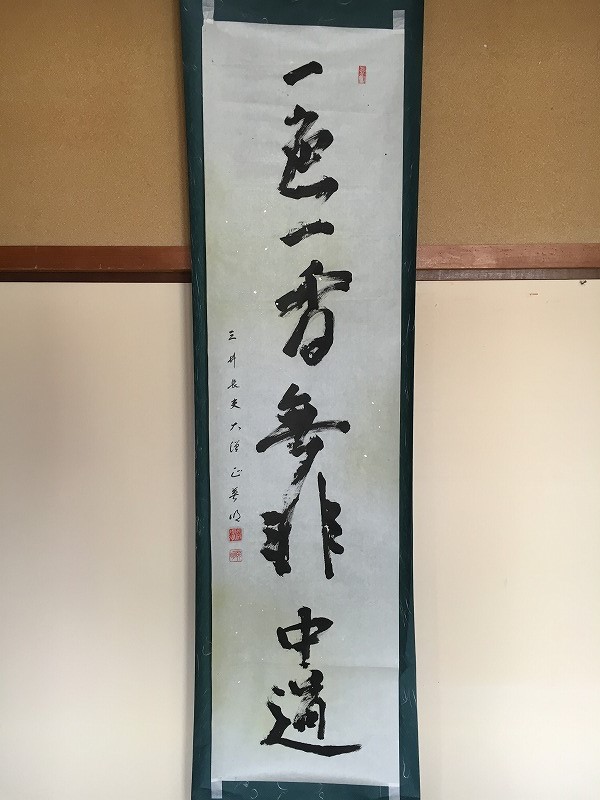 一色一香無非中道
三井長吏大僧正普明